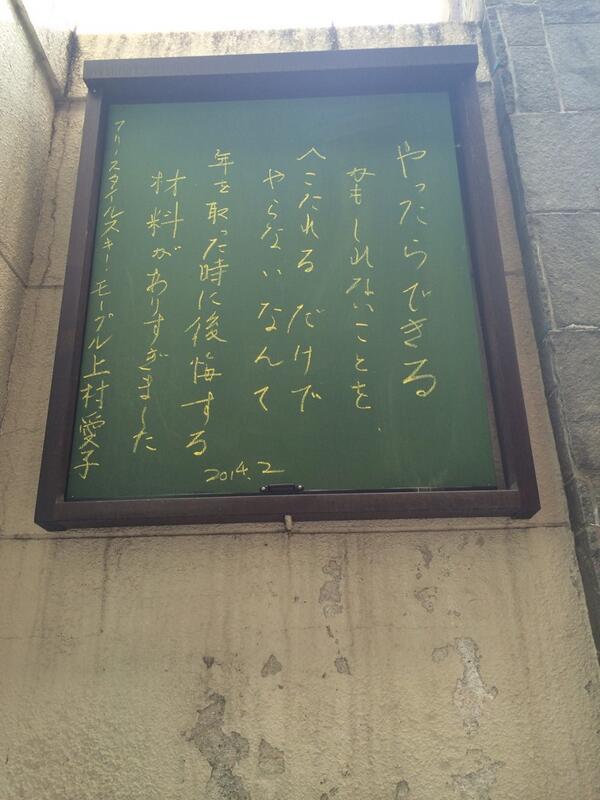 やったらできる
かもしれないことを、
へこたれるだけで
やらないなんて
年を取った時に後悔する
材料がありすぎました
フリースタイルスキー・モーグル上村愛子
2014.2